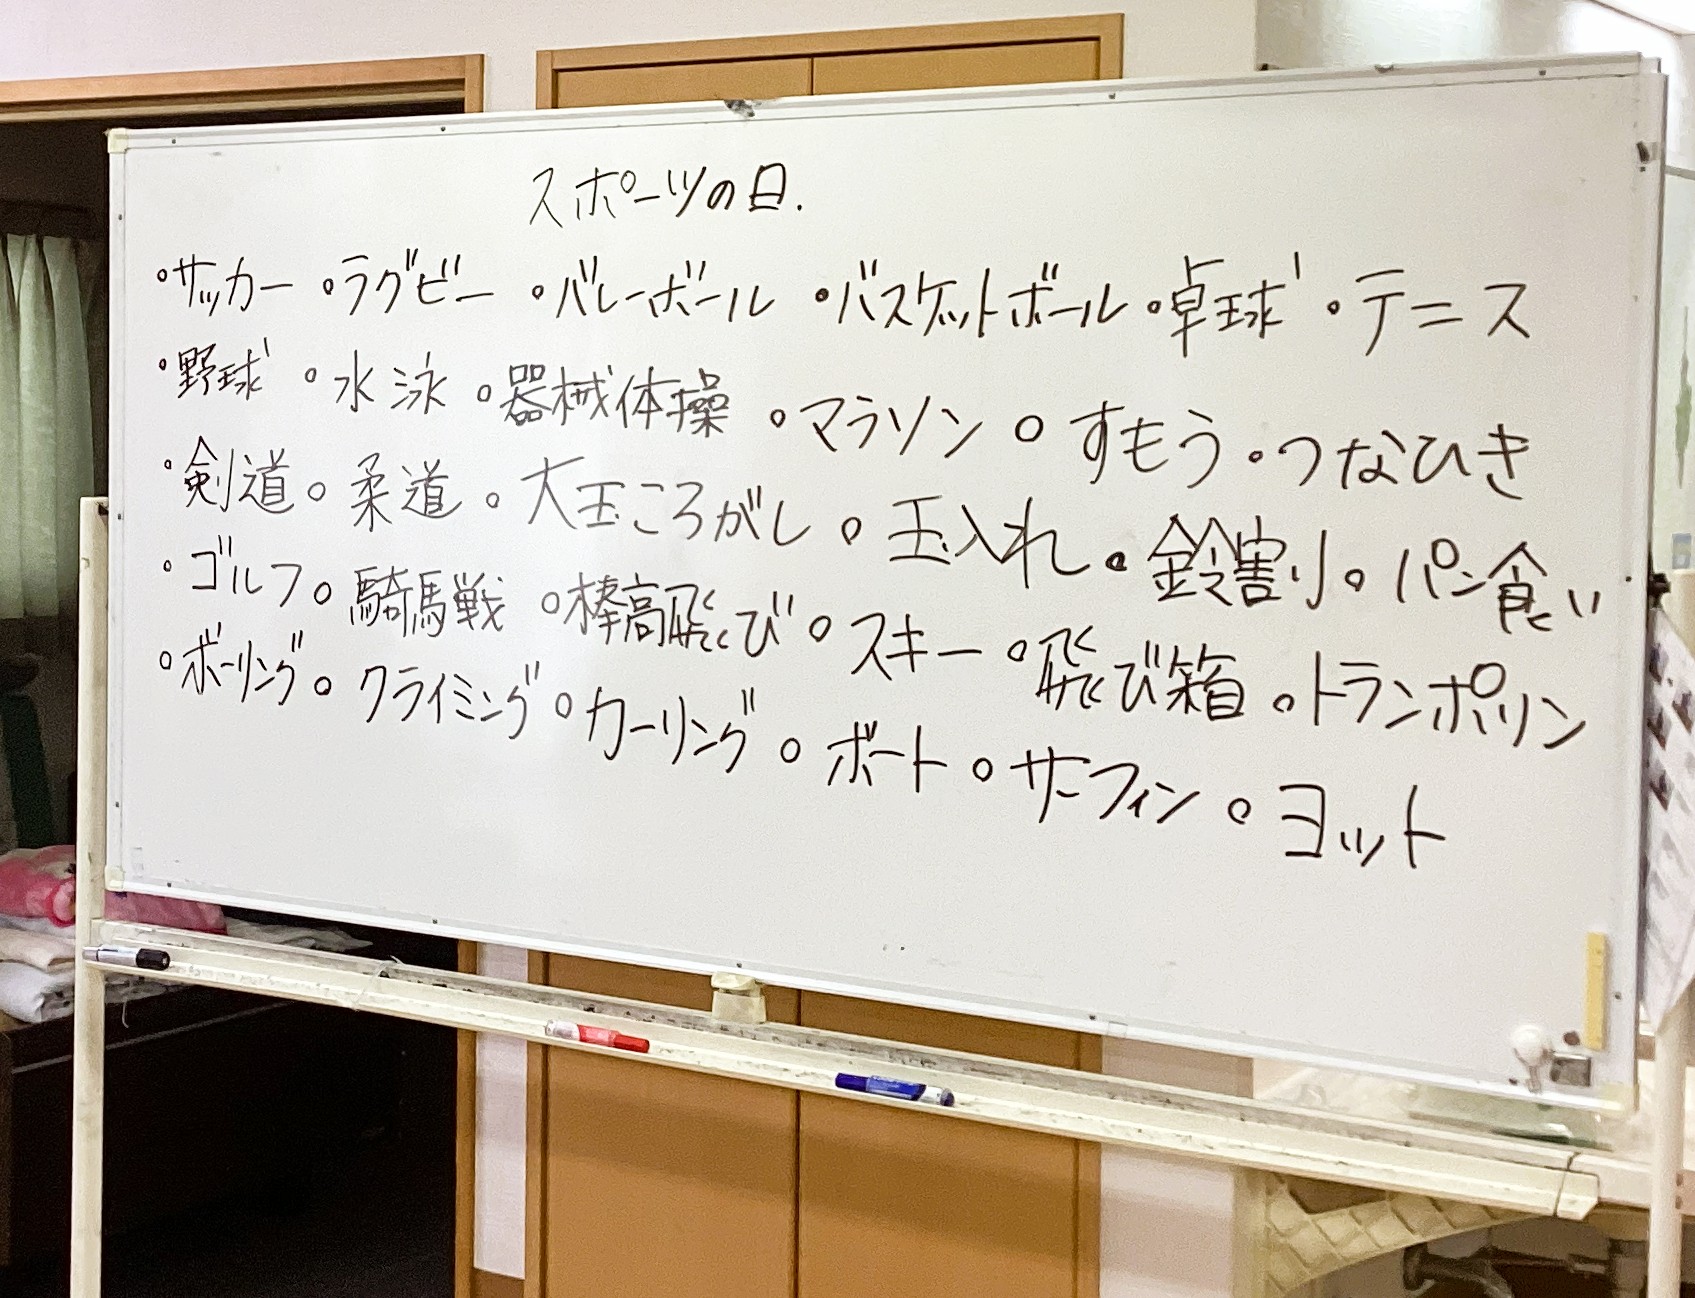 スポーツの日.
・サッカー ・ラグビー ・バレーボール ・バスケットボール ・卓球 ・テニス
・野球 ・水泳 ・器械体操 ・マラソン ・すもう ・つなひき
・剣道 ・柔道 ・大玉ころがし ・玉入れ ・鈴割り ・パン食い
・ゴルフ ・騎馬戦 ・棒高飛び ・スキー ・飛び箱 ・トランポリン
・ボーリング ・クライミング ・カーリング ・ボート ・サーフィン ・ヨット